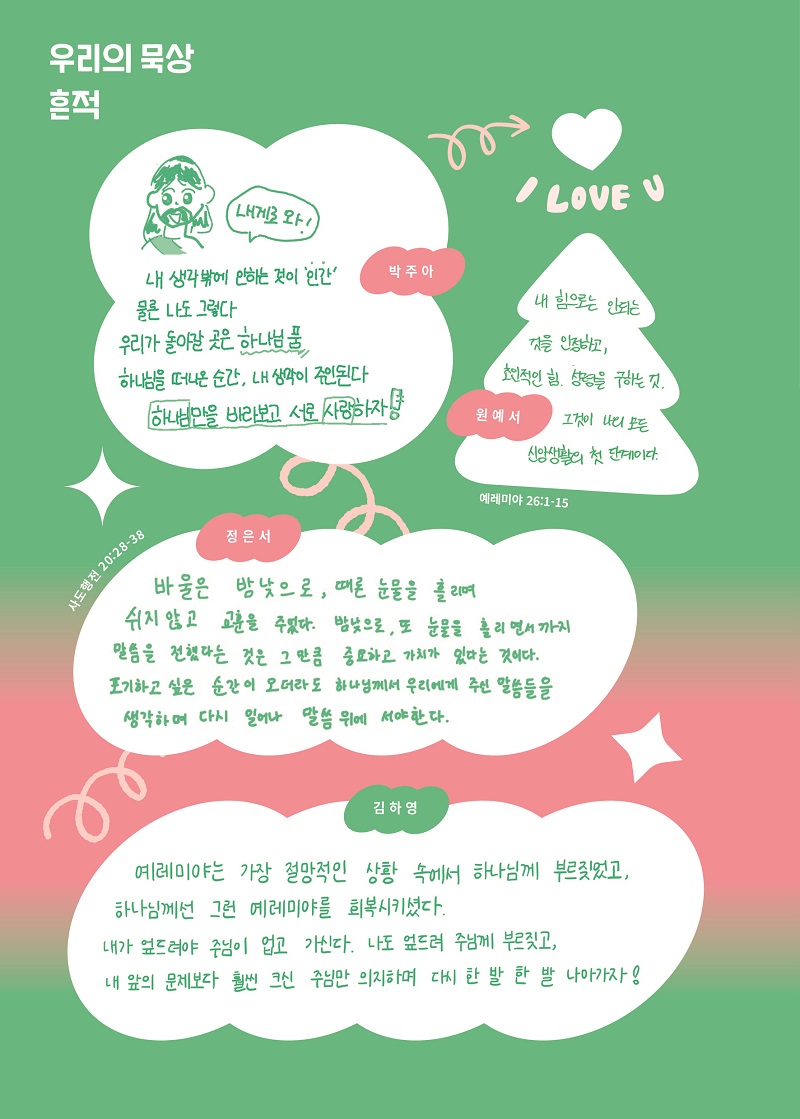 우리의 묵상
흔적
I LOVE U
내게로 와!
박주아
내 생각밖에 안하는 것이 '인간'
물론 나도 그렇다
우리가 돌아갈 곳은 하나님 품
하나님을 떠나온 순간, 내 생각이 주인된다
하나님만을 바라보고 서로 사랑하자!
내 힘으로는 안되는
것을 인정하고,
초인적인 힘, 성령을 구하는 것.
원예서
그것이 나의 모든
신앙생활의 첫 단계이다.
예레미야 26:1-15
사도행전 20:28-38
정은서
바울은 밤낮으로, 때론 눈물을 흘리며
쉬지 않고 교훈을 주었다. 밤낮으로, 또 눈물을 흘리면서까지
말씀을 전했다는 것은 그만큼 중요하고 가치가 있다는 것이다.
포기하고 싶은 순간이 오더라도 하나님께서 우리에게 주신 말씀들을
생각하며 다시 일어나 말씀 위에 서야한다.
김하영
예레미야는 가장 절망적인 상황 속에서 하나님께 부르짖었고,
하나님께선 그런 예레미야를 회복시키셨다.
내가 엎드려야 주님이 업고 가신다. 나도 엎드려 주님께 부르짖고,
내 앞의 문제보다 훨씬 크신 주님만 의지하며 다시 한 발 한 발 나아가자!